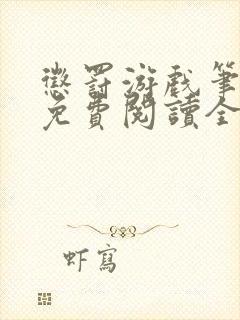 懲罰游戲筆
免費閱讀全
虾寫